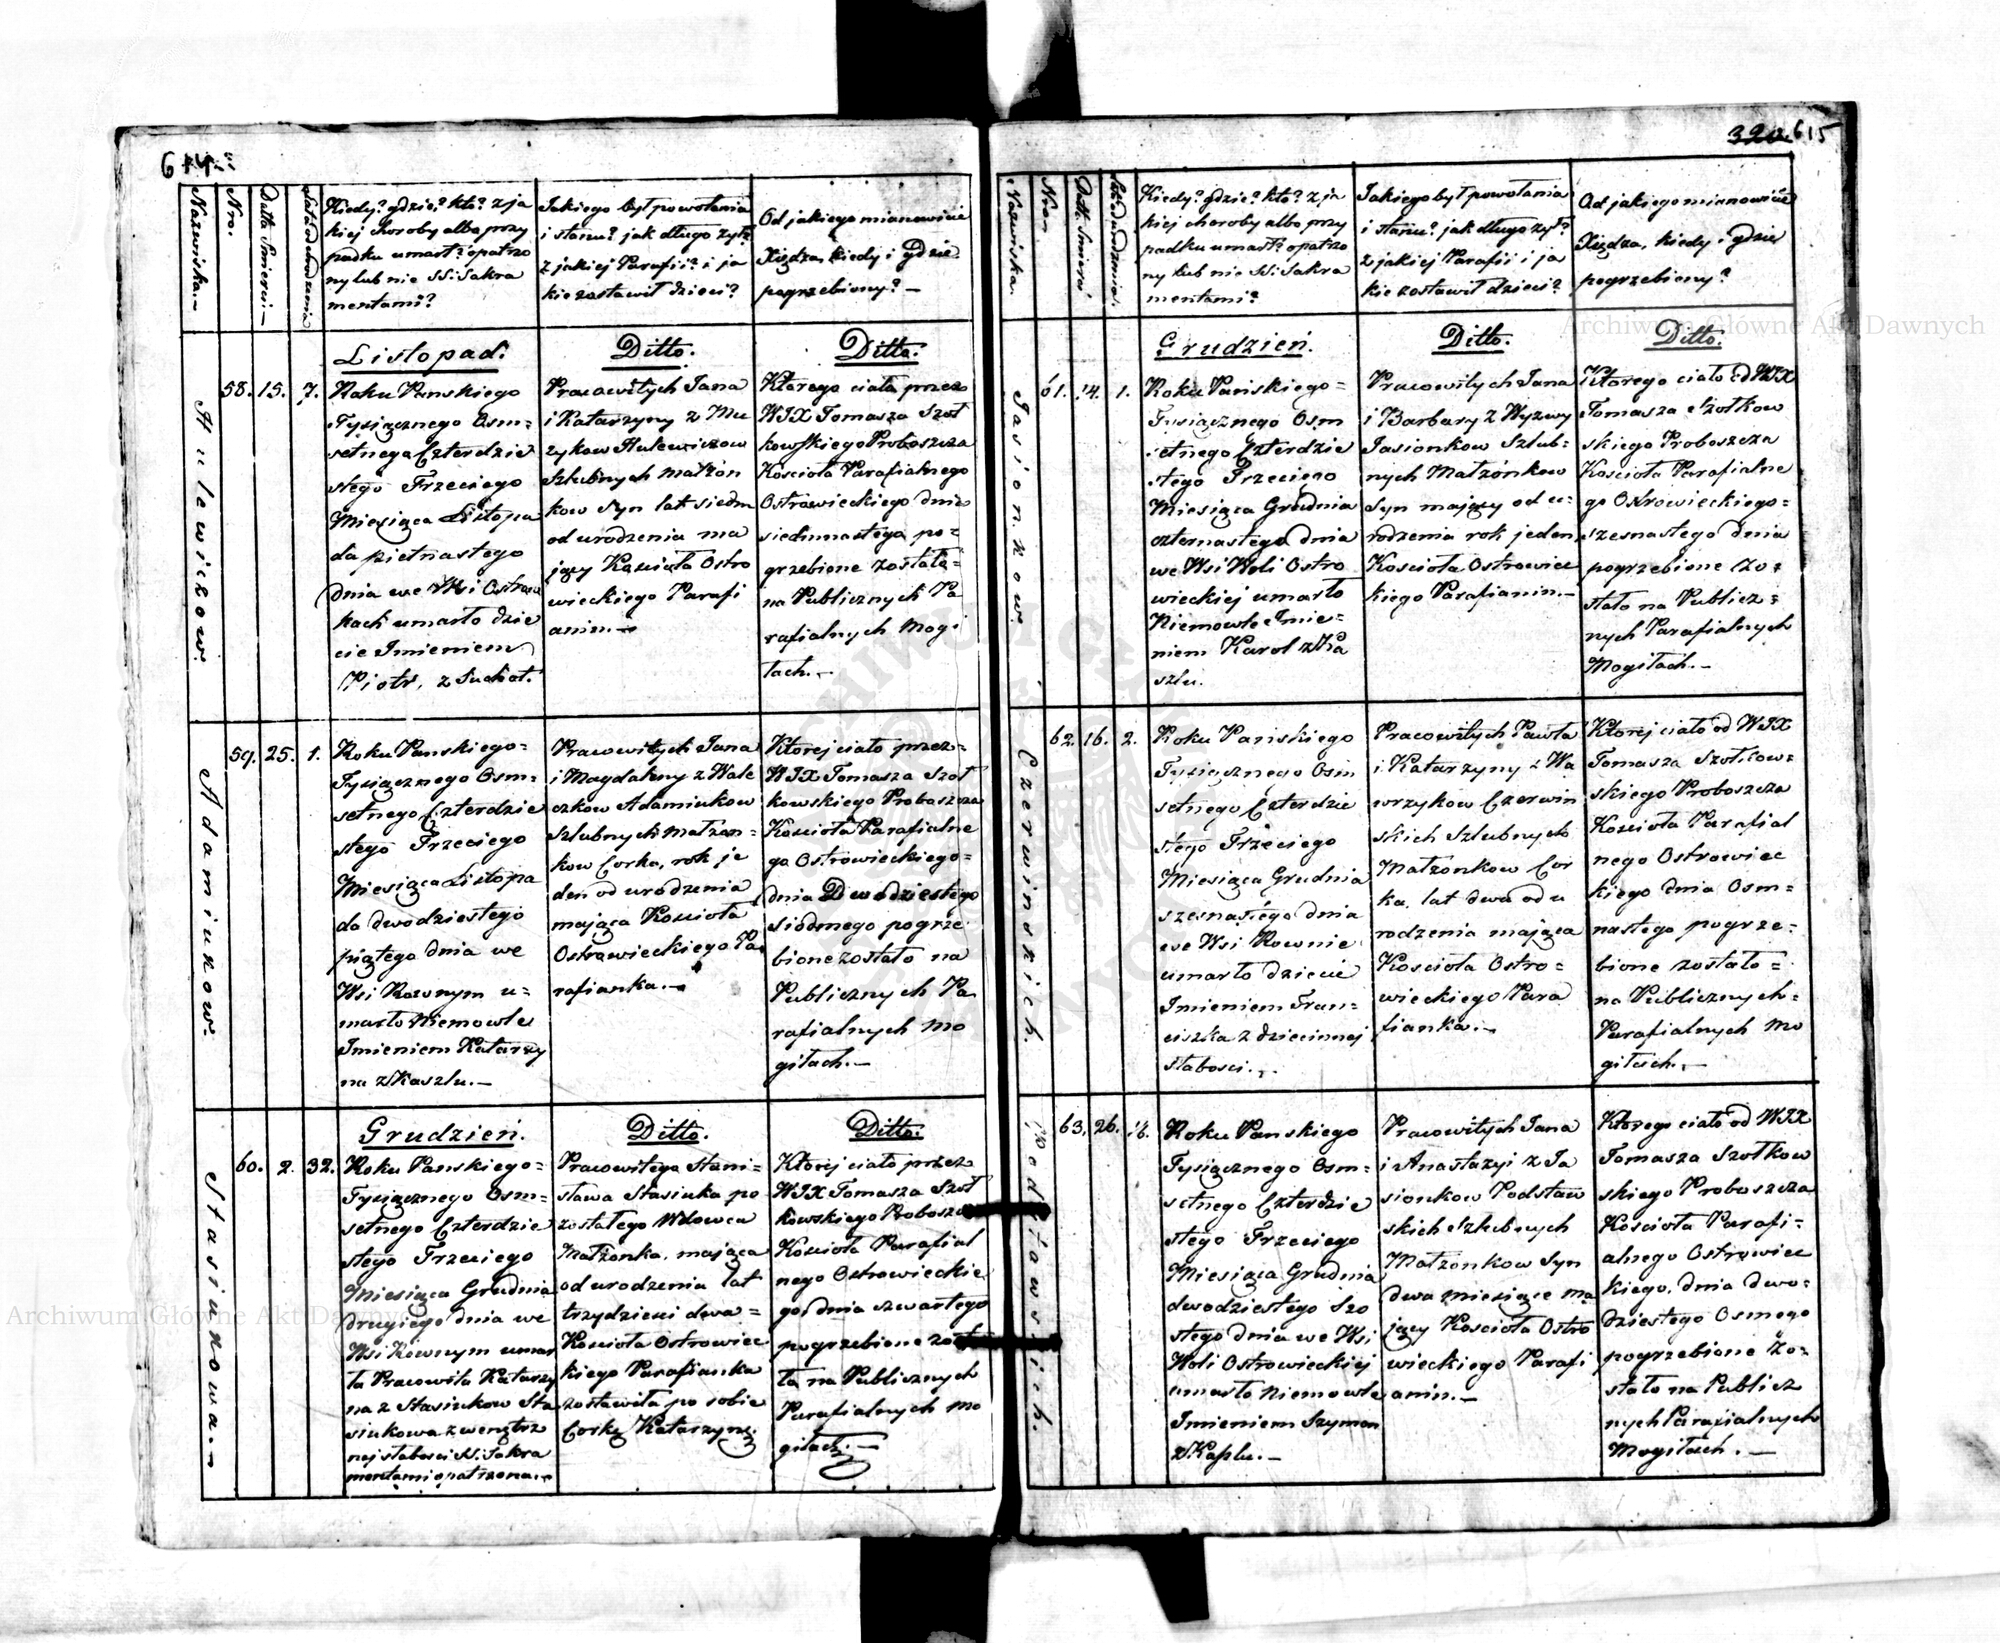 614
Nazwiska.—
Nro.
Datta Smierci.—
Lata od urodzenia
Kiedy? gdzie? kto? z ja
kiej choroby albo przy
padku umarł? opatrzo
ny lub nie SS: Sakra
mentami?
Jakiego był powołania
i stanu? jak długo żył?
z jakiej Parafii? i ja
kie zostawił dzieci?
Od jakiego mianowicie
Xiędza, kiedy i gdzie
pogrzebiony?—
Hulewiczow.
58.
15.
7.
Listopad.
Roku Panskiego
Tysiącznego Osm=
setnego Czterdzie
stego Trzeciego
Miesiąca Listopa
da piętnastego
dnia we Wsi Ostrow
kach umarło dzie
cie Imieniem
Piotr, z Suchot.
Ditto.
Pracowitych Jana
i Katarzyny z Mu
zykow Hulewiczow
Szlubnych Małżon
kow Syn lat siedm
od urodzenia ma
jący Koscioła Ostro
wieckiego Parafi
anin.—
Ditto.
Ktorego ciało przez
WJX Tomasza Szoł
kowskiego Proboszcza
Kościoła Parafialnego
Ostrowieckiego dnia
siedmnastego po=
grzebione zostało=
na Publicznych Pa
rafialnych Mogi
łach.—
Adamiukow.
59.
25.
1.
Roku Panskiego=
Tysiącznego Osm=
setnego Czterdzie
stego Trzeciego
Miesiąca Listopa
da dwodziestego
piątego dnia we
Wsi Rownym u=
marło Niemowle
Imieniem Katarzy
na z Kaszlu.—
Pracowitych Jana
i Magdaleny z Wale
czkow Adamiukow
Szlubnych Małżon=
kow Corka, rok je
den od urodzenia
mająca Kosciola
Ostrowieckiego Pa
rafianka.—
Ktorej ciało przez=
WJX Tomasza Szoł
kowskiego Proboszcza
Kościoła Parafialne
go Ostrowieckiego=
dnia Dwodziestego
siodmego pogrze
bione zostało na
Publicznych Pa
rafialnych Mo
giłach.—
Stasiukowa
60.
2.
32.
Grudzień.
Roku Panskiego=
Tysiącznego Osm=
setnego Czterdzie
stego Trzeciego
Miesiąca Grudnia
drugiego dnia we
Wsi Rownym umar
ła Pracowita Katarzy
na z Stasiukow Sta
siukowa z wenętrz
nej słabosci SS. Sakra
mentami opatrzona.—
Ditto.
Pracowitego Stani=
sława Stasiuka po
zostałego Wdowca
Małżonka, mająca
od urodzenia lat
trzydzieci dwa=
Kosciola Ostrowiec
kiego Parafianka
zostawiła po sobie
Corkę Katarzynę.
Ditto.
Ktorej ciało przez
WJX Tomasza Szoł
kowskiego Proboszcza
Kościoła Parafial
nego Ostrowieckie
go dnia czwartego
pogrzebione zosta
ło na Publicznych
Parafialnych Mo
giłach.—
320 615
Nazwiska.
Nro
Dat. Smierci
Kiedy? gdzie? kto? z ja
kiej choroby albo przy
padku umarł? opatrzo
ny lub nie SS. Sakra
mentami?
Jakiego był powołania
i stanu? jak długo żył?
z jakiej Parafii i ja
kie zostawił dzieci?
Od jakiego mianowicie
Xiędza, kiedy i gdzie
pogrzebiony?
Jasionkow
61.
14.
1.
Grudzień.
Roku Pańskiego=
Tysiącznego Osm
setnego Czterdzie
stego Trzeciego
Miesiąca Grudnia
czternastego dnia
we Wsi Woli Ostro
wieckiej umarło
Niemowle Imie=
niem Karol z Ka
szlu.
Ditto.
Pracowitych Jana
i Barbary z Wyzwy
Jasionkow Szlub=
nych Małżonkow
Syn mający od u=
rodzenia rok jeden
Kościoła Ostrowiec
kiego Parafianin.—
Ditto.
Ktorego ciało od WJX
Tomasza Szołkow
skiego Proboszcza
Kościoła Parafialne
go Ostrowieckiego=
szesnastego dnia
pogrzebione zo=
stało na Publicz=
nych Parafialnych
Mogiłach.—
Czerwinskich.
62.
16.
2.
Roku Panskiego
Tysiącznego Osm
setnego Czterdzie
stego Trzeciego
Miesiąca Grudnia
szesnastego dnia
we Wsi Rownie
umarło dziecie
Imieniem Fran=
ciszka z dziecinnej
słabosci.—
Pracowitych Pawła
i Katarzyny z Wa
wrzykow Czerwin
skich Szlubnych
Małżonkow Cor
ka, lat dwa od u
rodzenia mająca
Kościoła Ostro=
wieckiego Para
fianka.—
Ktorej ciało od WJX
Tomasza Szołkow=
skiego Proboszcza
Kościoła Parafial
nego Ostrowiec
kiego dnia Osm=
nastego pogrze=
bione zostało=
na Publicznych=
Parafialnych Mo
giłach.—
Podstawskich.
63.
26.
Roku Panskiego
Tysiącznego Osm=
setnego Czterdzie
stego Trzeciego
Miesiąca Grudnia
dwodziestego Szo
stego dnia we Wsi
Woli Ostrowieckiej
umarło Niemowle
Imieniem Szymon
z Kaszlu.—
Pracowitych Jana
i Anastazyi z Ja
sionkow Podstaw
skich Szlubnych
Małżonkow Syn
dwa miesiące ma
jący Kościoła Ostro
wieckiego Parafi
anin.—
Ktorego ciało od WJX
Tomasza Szołkow
skiego Proboszcza
Kościoła Parafi=
alnego Ostrowiec
kiego, dnia dwo=
dziestego Osmego
pogrzebione zo=
stało na Publicz
nych Parafialnych
Mogiłach.—
Archiwum Główne Akt Dawnych
Archiwum Główne Akt Dawnych